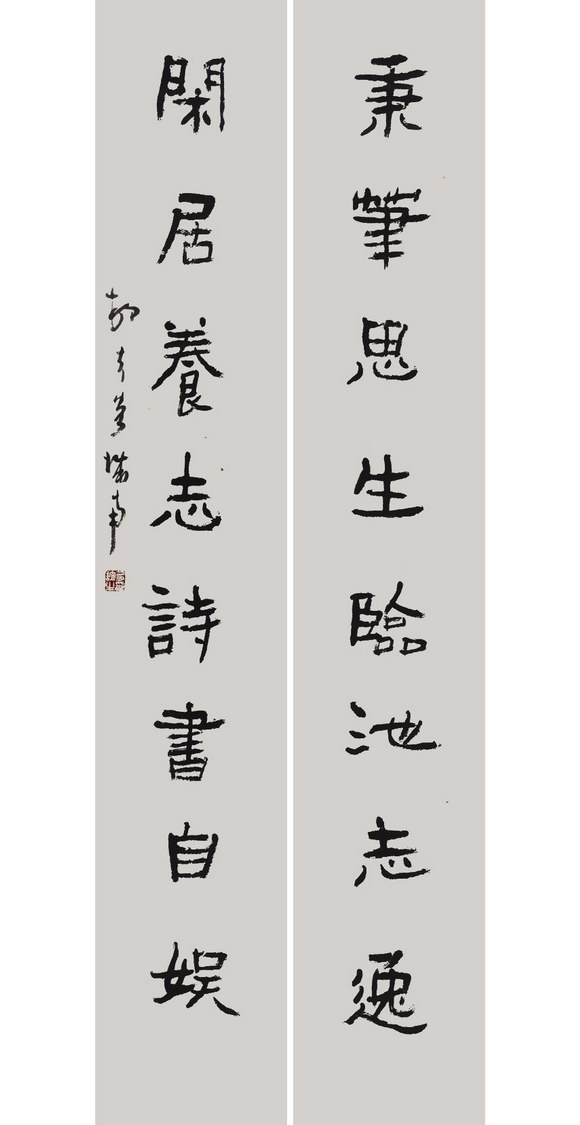 秉筆思生臨池志逸
閑居養志詩書自娱